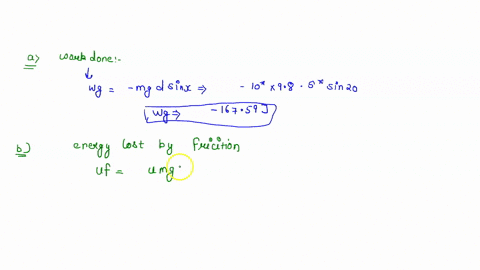 a) work done:-
↓
Wg = -mg d sinx ⇒ - 10* × 9.8 · 5* sin 20
Wg ⇒ -167.59 J
b) energy lost by fricition
uf = umg.